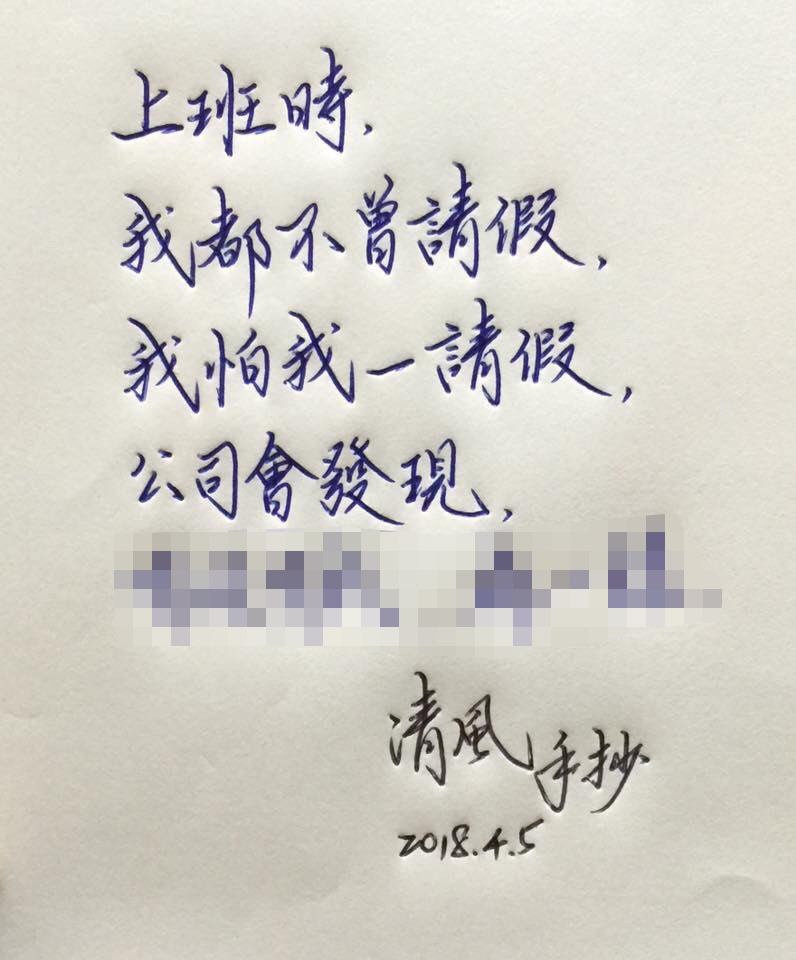 上班時，
我都不曾請假，
我怕我一請假，
公司會發現，
清風手抄
2018.4.5